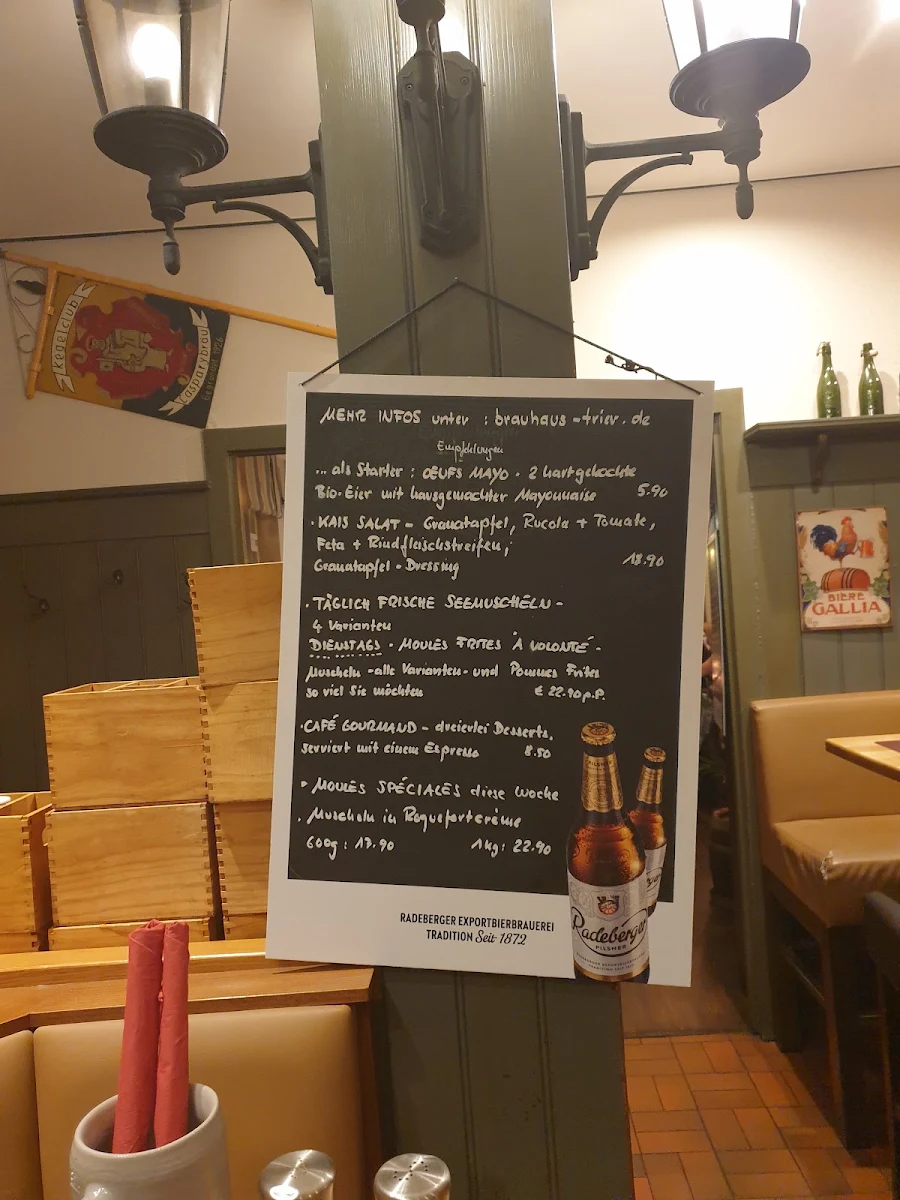 kegelclub
Casparybräu
MEHR INFOS unter : brauhaus-trier.de
Empfehlungen
... als Starter : ŒUFS MAYO - 2 hartgekochte
Bio-Eier mit hausgemachter Mayonnaise 5.90
· KAIS SALAT - Granatapfel, Rucola + Tomate,
Feta + Rindfleischstreifen,
Granatapfel-Dressing 18.90
· TÄGLICH FRISCHE SEEMUSCHELN -
4 Varianten
DIENSTAGS - MOULES FRITES À VOLONTÉ -
Muscheln -alle Varianten- und Pommes Frites
so viel Sie möchten € 22.90 p.P.
· CAFÉ GOURMAND - dreierlei Desserts,
serviert mit einem Espresso 8.50
· MOULES SPÉCIALES diese Woche
· Muscheln in Roquefortcrème
600g : 17.90 1kg : 22.90
RADEBERGER EXPORTBIERBRAUEREI
TRADITION Seit 1872
Radeberger
PILSNER
BIERE
GALLIA